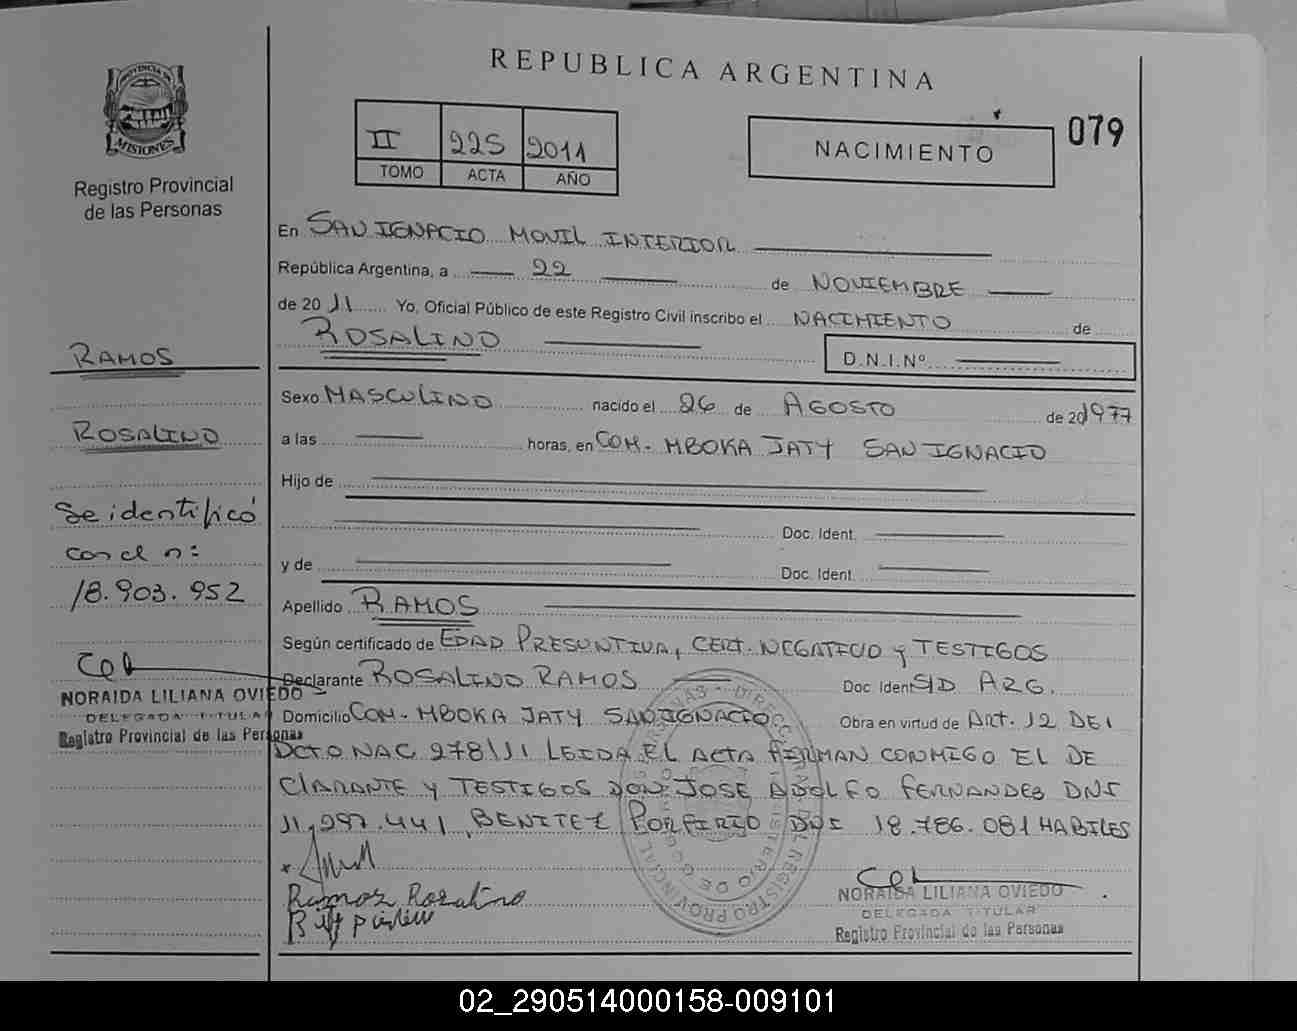 REPUBLICA ARGENTINA
PROVINCIA DE
MISIONES
Registro Provincial
de las Personas
II 225 2011
TOMO ACTA AÑO
NACIMIENTO
079
En SAN IGNACIO MOVIL INTERIOR
República Argentina, a 22 de NOVIEMBRE
de 2011 Yo, Oficial Público de este Registro Civil inscribo el NACIMIENTO de
ROSALINO
D.N.I.Nº
RAMOS
ROSALINO
Se identificó
con el n:
18.903.952
NORAIDA LILIANA OVIEDO
DELEGADA TITULAR
Registro Provincial de las Personas
Sexo MASCULINO nacido el 26 de AGOSTO de 201977
a las horas, en COM. MBOKA JATY SAN IGNACIO
Hijo de
Doc. Ident.
y de Doc. Ident.
Apellido RAMOS
Según certificado de EDAD PRESUNTIVA, CERT. NEGATIVO y TESTIGOS
Declarante ROSALINO RAMOS Doc. Ident S/D ARG.
Domicilio COM. MBOKA JATY SAN IGNACIO Obra en virtud de ART. 12 DEL
DCTO NAC 278/11 LEIDA EL ACTA FIRMAN CONMIGO EL DE
CLARANTE Y TESTIGOS DON: JOSE ADOLFO FERNANDES DNI
11.297.441, BENITEZ PORFIRIO DNI 18.786.081 HABILES
Ramos Rosalino
NORAIDA LILIANA OVIEDO
DELEGADA TITULAR
Registro Provincial de las Personas
02_290514000158-009101